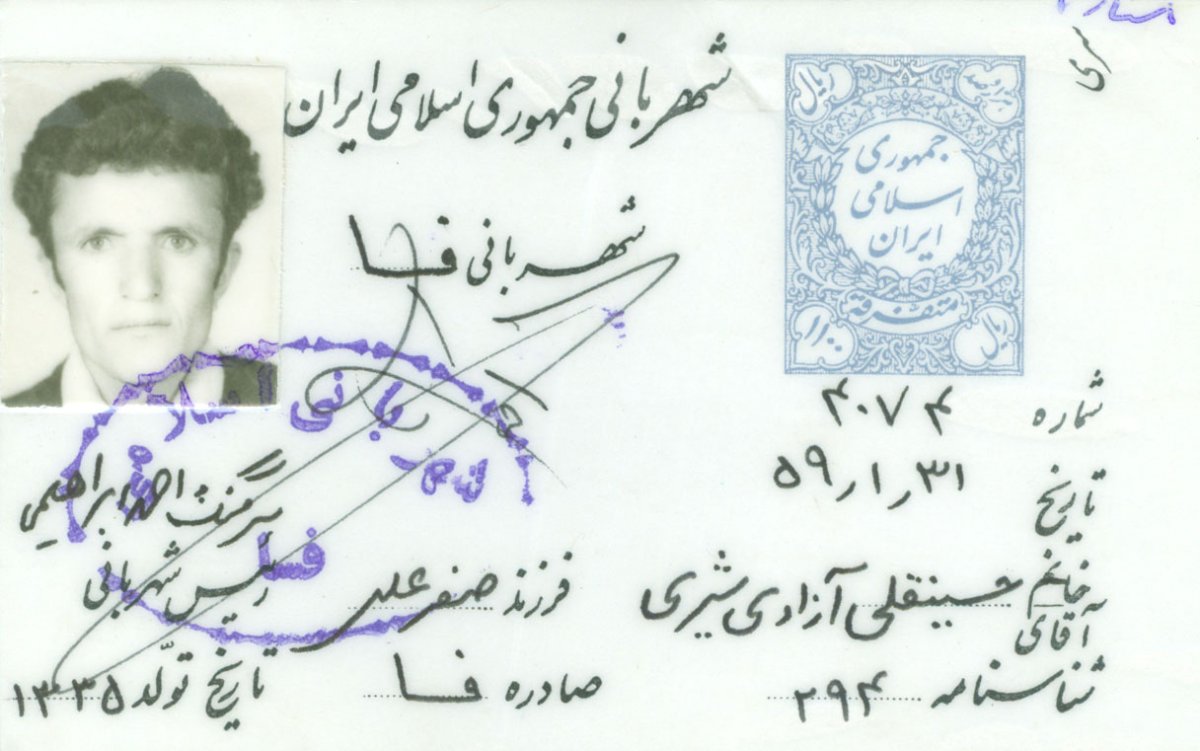 سری
ریال
جمهوری
اسلامی
ایران
متفرقه
ریال
شهربانی جمهوری اسلامی ایران
شهربانی فسا
شماره ۴۰۷۴
تاریخ ۳۱ر۱ر۵۹
خانم
آقای حسینقلی آزادی شیری فرزند صفرعلی
شناسنامه ۲۹۴ صادره فسا تاریخ تولّد ۱۳۳۵
سرهنگ احمد ابراهیمی
رئیس شهربانی
شهربانی
فسا